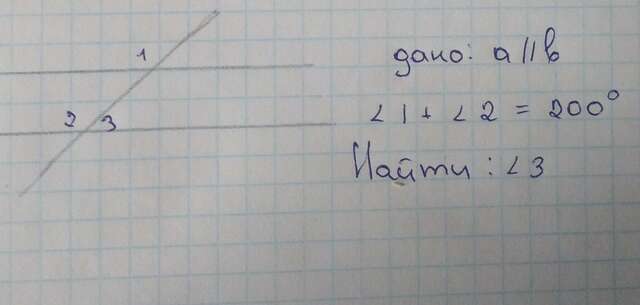 1
2 3
дано: a || b
∠1 + ∠2 = 200°
Найти: ∠3